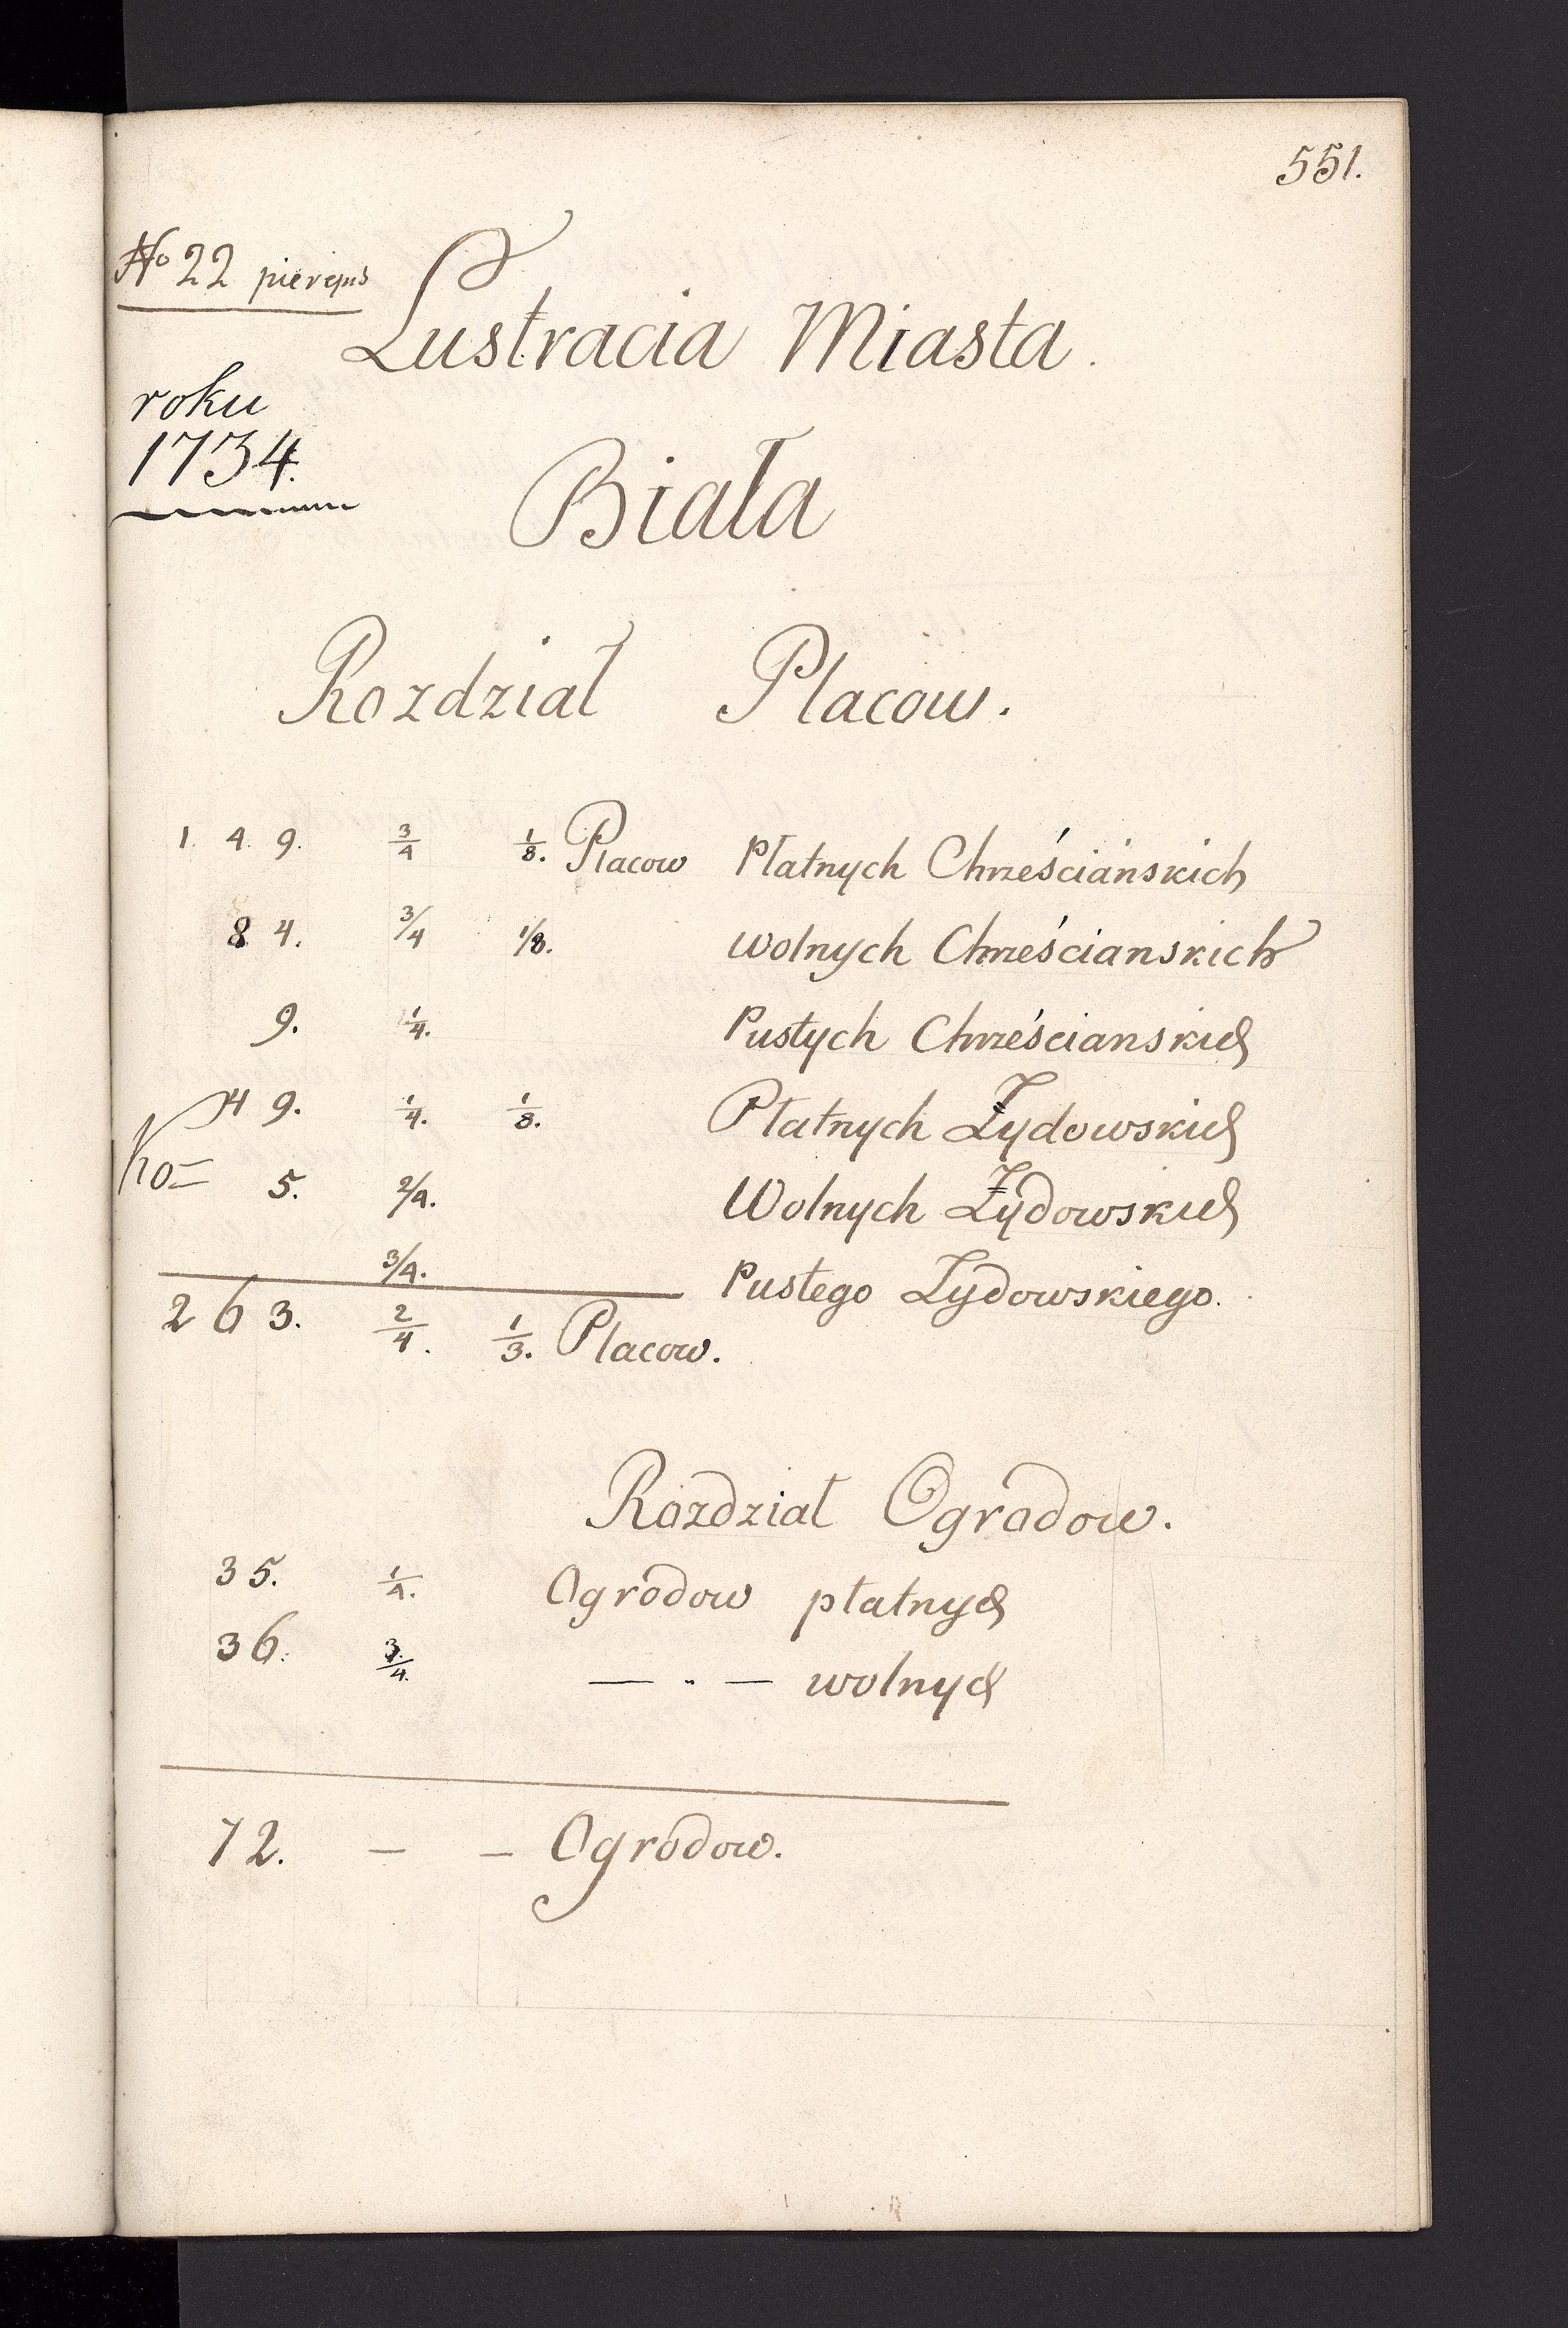 551.
No 22
Lustracia Miasta.
roku
1734.
Biała
Rozdział Placow.
1. 4. 9. 3/4 1/8. Placow Płatnych Chrześciańskich
8 4. 3/4 1/8. wolnych Chrześcianskich
9. 1/4. Pustych Chrześcianskich
4 9. 1/4. 1/8. Płatnych Żydowskich
5. 2/4. Wolnych Żydowskich
3/4. Pustego Żydowskiego.
2 6 3. 2/4. 1/3. Placow.
Rozdział Ogrodow.
35. 1/4. Ogrodow płatnych
36. 3/4. — „ — wolnych
72. — — Ogrodow.